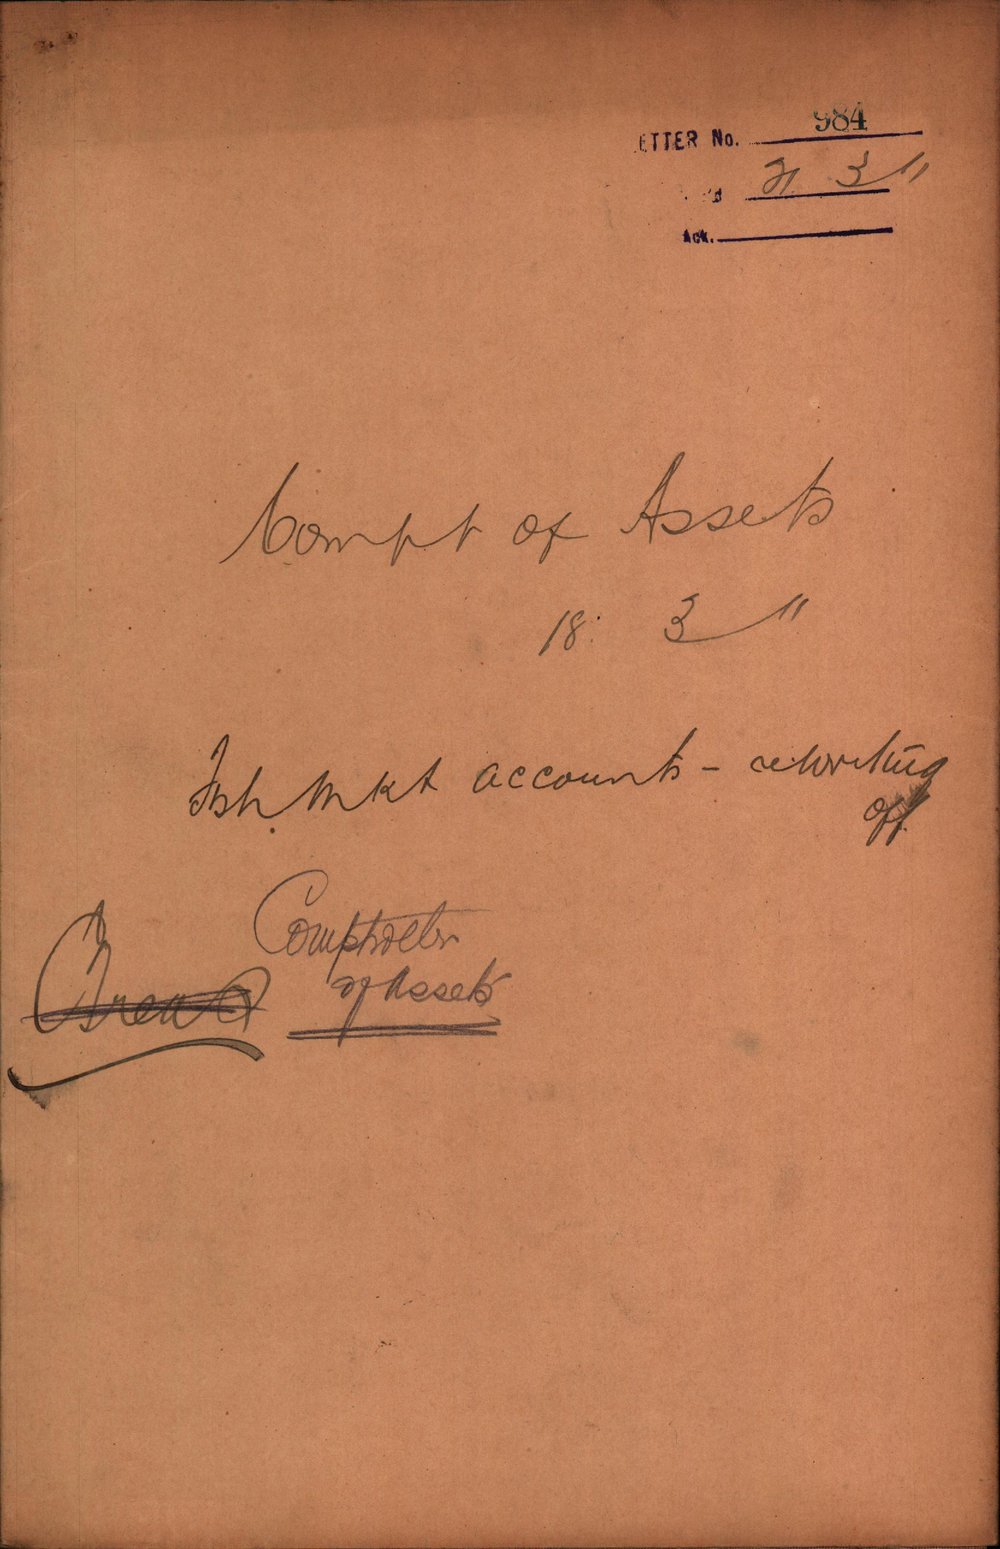 ETTER No. 984
'd 21 3 11
Ack.
Compt of Assets
18. 3 11
Fish Mkt accounts - re writing
off.
Comptroller
of Assets